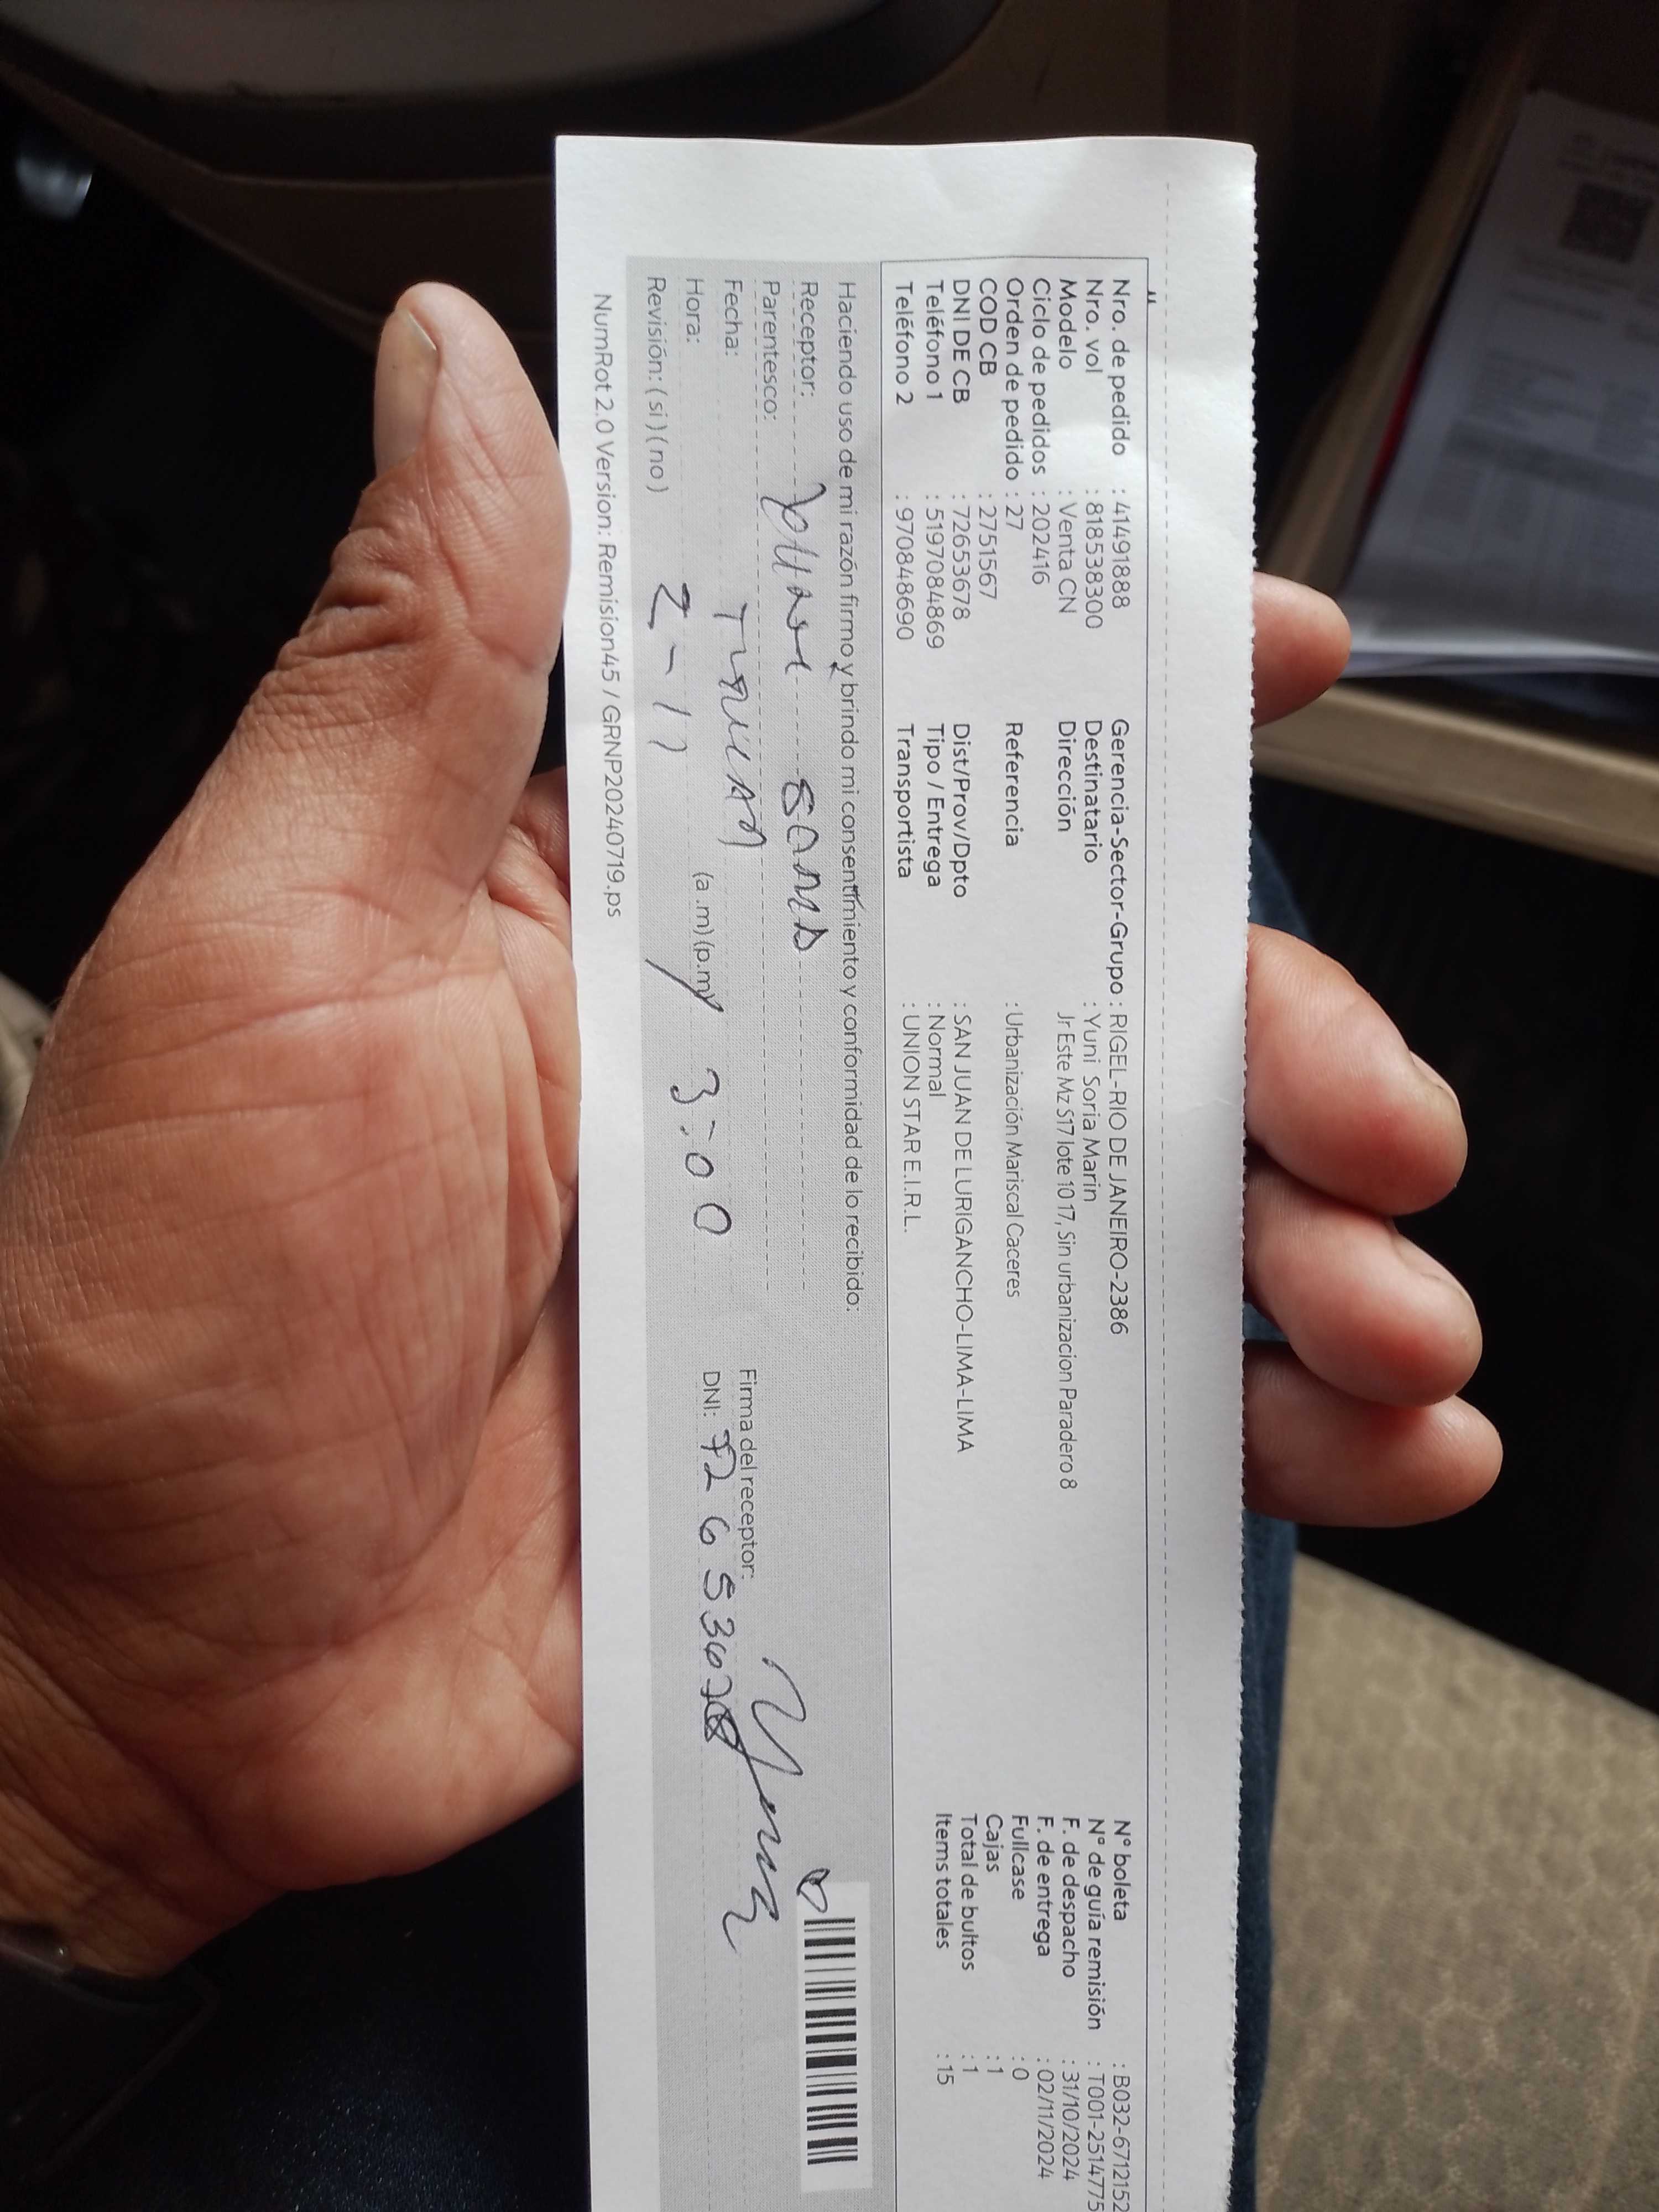 Nro. de pedido : 41491888 Gerencia-Sector-Grupo : RIGEL-RIO DE JANEIRO-2386 N° boleta : B032-6712152
Nro. vol : 818538300 Destinatario : Yuni Soria Marin N° de guía remisión : T001-2514775
Modelo : Venta CN Dirección Jr Este Mz S17 lote 10 17, Sin urbanizacion Paradero 8 F. de despacho : 31/10/2024
Ciclo de pedidos : 202416 F. de entrega : 02/11/2024
Orden de pedido : 27 Referencia : Urbanización Mariscal Caceres Fullcase : 0
COD CB : 2751567 Cajas : 1
DNI DE CB : 72653678 Dist/Prov/Dpto : SAN JUAN DE LURIGANCHO-LIMA-LIMA Total de bultos : 1
Teléfono 1 : 5197084869 Tipo / Entrega : Normal Items totales : 15
Teléfono 2 : 970848690 Transportista : UNION STAR E.I.R.L.
Haciendo uso de mi razón firmo y brindo mi consentimiento y conformidad de lo recibido:
Receptor:
Parentesco:
Fecha: Firma del receptor:
Hora: 2-11 (a.m) (p.m) 3:00 DNI: 72653678
Revisión: (si) (no)
NumRot 2.0 Version: Remision45 / GRNP20240719.ps